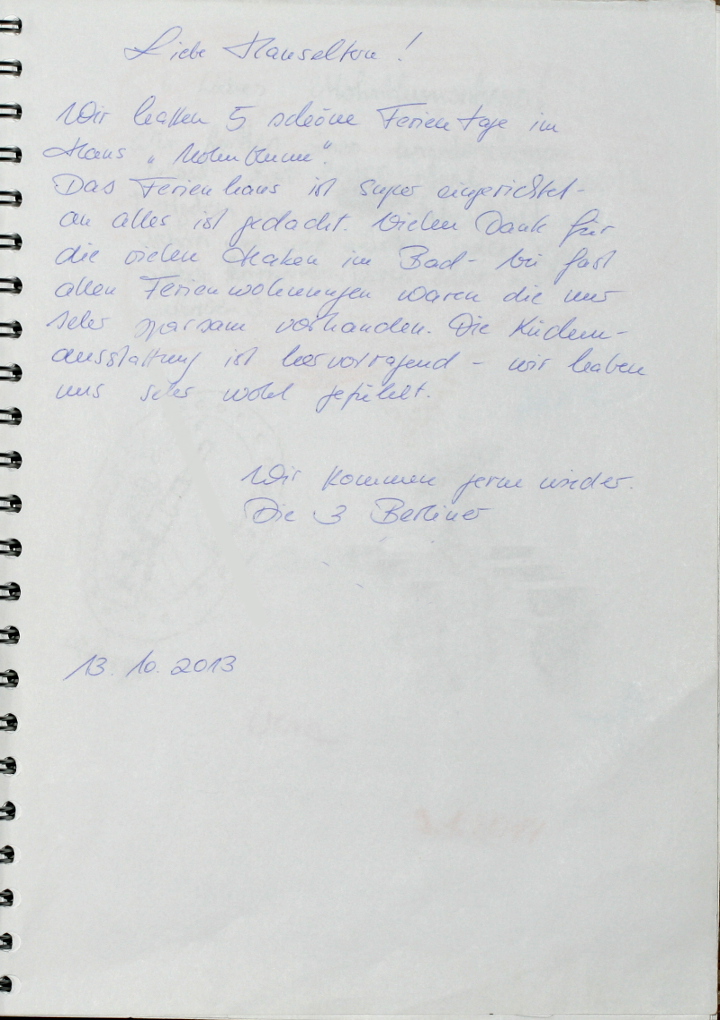 Liebe Hauseltern!
Wir hatten 5 schöne Ferientage im
Haus „Mohnblume".
Das Ferienhaus ist super eingerichtet-
an alles ist gedacht. Vielen Dank für
die vielen Haken im Bad - bei fast
allen Ferienwohnungen waren die nur
sehr sparsam vorhanden. Die Küchen-
ausstattung ist hervorragend - wir haben
uns sehr wohl gefühlt.
Wir kommen gerne wieder.
Die 3 Berliner
13.10.2013